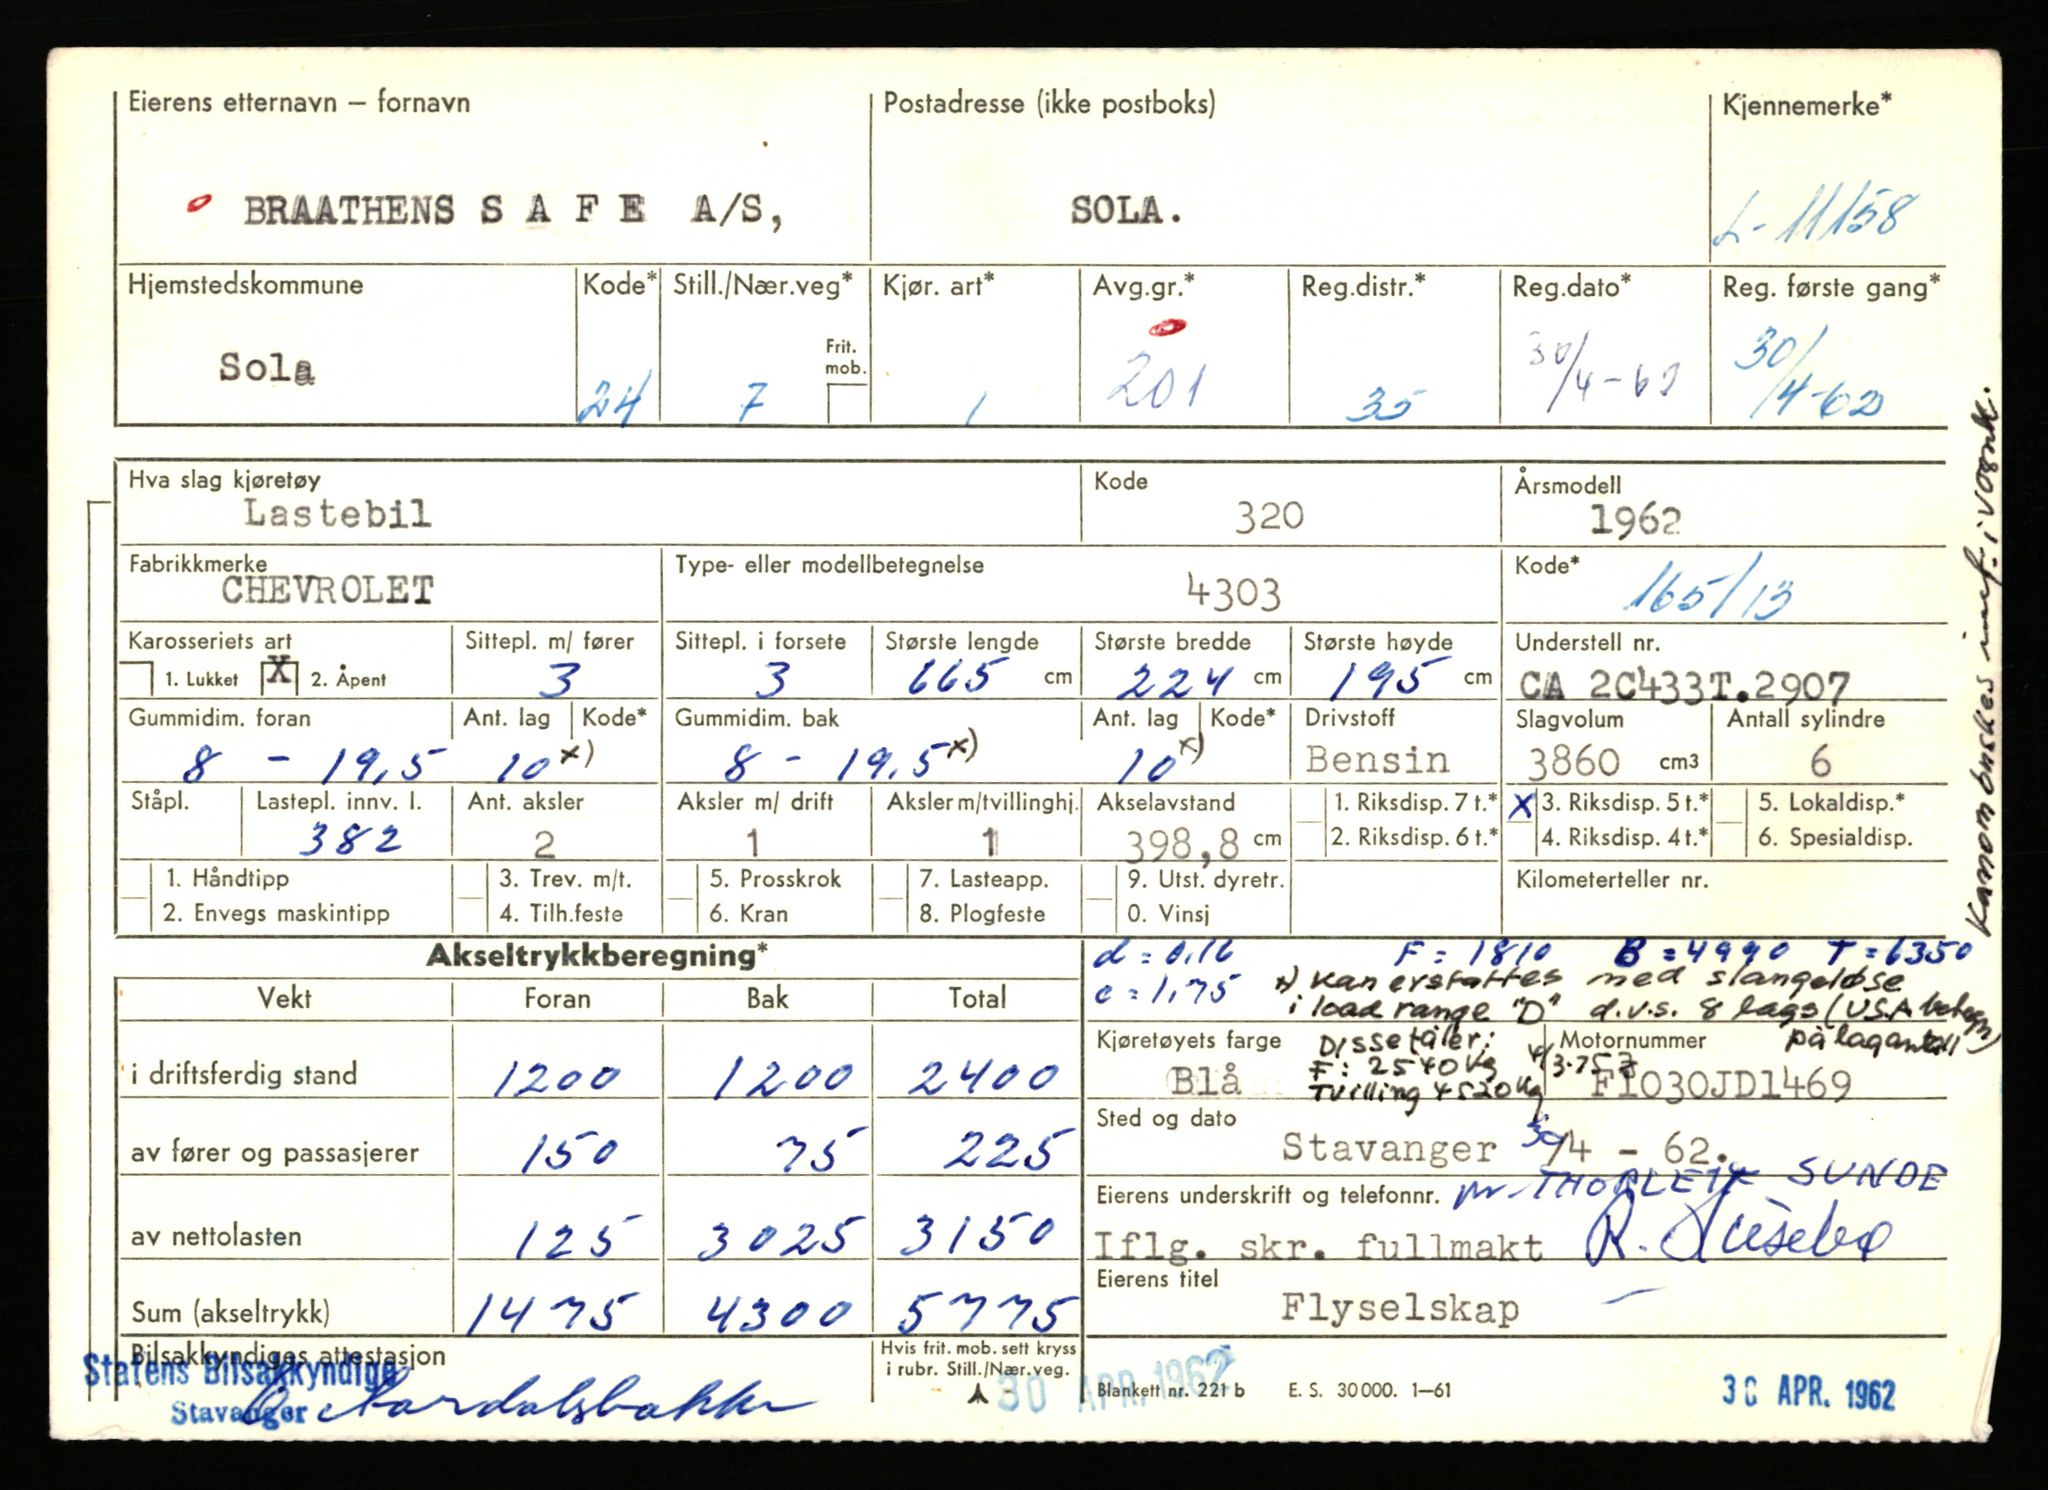 Eierens etternavn – fornavn Postadresse (ikke postboks) Kjennemerke*
BRAATHENS S A F E A/S, SOLA. L-11158
Hjemstedskommune Kode* Still./Nær.veg* Kjør. art* Avg.gr.* Reg.distr.* Reg.dato* Reg. første gang*
Frit. mob.
Sola 24 7 1 201 35 30/4-62 30/4-62
Hva slag kjøretøy Kode Årsmodell
Lastebil 320 1962
Fabrikkmerke Type- eller modellbetegnelse Kode*
CHEVROLET 4303 165/13
Karosseriets art Sittepl. m/ fører Sittepl. i forsete Største lengde Største bredde Største høyde Understell nr.
1. Lukket X 2. Åpent 3 3 665 cm 224 cm 195 cm CA 2C433T.2907
Gummidim. foran Ant. lag Kode* Gummidim. bak Ant. lag Kode* Drivstoff Slagvolum Antall sylindre
8 - 19,5 10 x) 8 - 19,5 x) 10 x) Bensin 3860 cm3 6
Ståpl. Lastepl. innv. l. Ant. aksler Aksler m/ drift Aksler m/tvillinghj. Akselavstand 1. Riksdisp. 7 t.* X 3. Riksdisp. 5 t.* 5. Lokaldisp.*
382 2 1 1 398,8 cm 2. Riksdisp. 6 t.* 4. Riksdisp. 4 t.* 6. Spesialdisp.
1. Håndtipp 3. Trev. m/t. 5. Prosskrok 7. Lasteapp. 9. Utst. dyretr. Kilometerteller nr.
2. Envegs maskintipp 4. Tilh.feste 6. Kran 8. Plogfeste 0. Vinsj
Akseltrykkberegning* d = 0,16 F = 1810 B = 4990 T = 6350
c = 1,75 x) kan erstattes med slangeløse
i load range "D" d.v.s. 8 lags (U.S.A betegn.
på lagantall)
Vekt Foran Bak Total
Kjøretøyets farge Dissetåler: Motornummer
F: 2540 kg
Blå Tvilling 4520 kg F1030JD1469
i driftsferdig stand 1200 1200 2400
Sted og dato
Stavanger 30/4 - 62.
av fører og passasjerer 150 75 225
Eierens underskrift og telefonnr. pr. THORLEIF SUNDE
av nettolasten 125 3025 3150
Iflg. skr. fullmakt R.
Eierens titel
Sum (akseltrykk) 1475 4300 5775
Flyselskap
Bilsakkyndiges attestasjon Hvis frit. mob. sett kryss
i rubr. Still./Nær.veg.
Statens Bilsakkyndige
Stavanger
30 APR. 1962 Blankett nr. 221 b E. S. 30 000. 1–61 30 APR. 1962
Karom ønskes